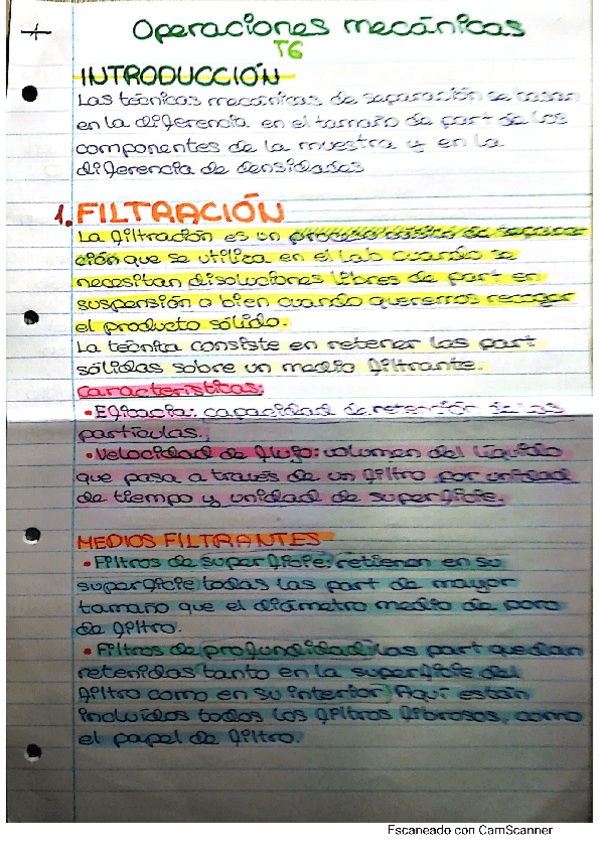 Operaciones mecánicas
T6
INTRODUCCIÓN
Las técnicas mecánicas de separación se basan
en la diferencia en el tamaño de part de los
componentes de la muestra y en la
diferencia de densidades
1. FILTRACIÓN
La filtración es un proceso básico de separa
ción que se utiliza en el lab cuando se
necesitan disoluciones libres de part en
suspensión o bien cuando queremos recoger
el producto sólido.
La técnica consiste en retener las part
sólidas sobre un medio filtrante.
Características:
• Eficacia: capacidad de retención de las
partículas.
• Velocidad de flujo: volumen del líquido
que pasa a través de un filtro por unidad
de tiempo y unidad de superficie.
MEDIOS FILTRANTES
• Filtros de superficie: retienen en su
superficie todas las part de mayor
tamaño que el diámetro medio de poro
de filtro.
• Filtros de profundidad: las part quedan
retenidas tanto en la superficie del
filtro como en su interior. Aquí están
incluidos todos los filtros fibrosos, como
el papel de filtro.
Escaneado con CamScanner